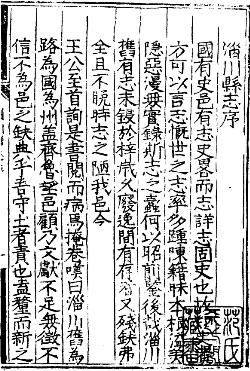 淄川縣志序
國有史邑有志史畧而志詳志固史也故
方可以言志慨世之志率多踵陳籍昧本
隱惡漫無實錄斯志之蠹何以昭前鑒後哉淄川
舊有志未録於梓歲久廢逸間有存者又殘缺弗
全且不脫特志之陋我邑令
王公至首詢是書閱而病焉掩卷嘆曰淄川舊為
路為國為州盖齊魯望邑顧乃文獻不足無徵不
信不為邑之缺典乎吾守土者責也盍釐而新之